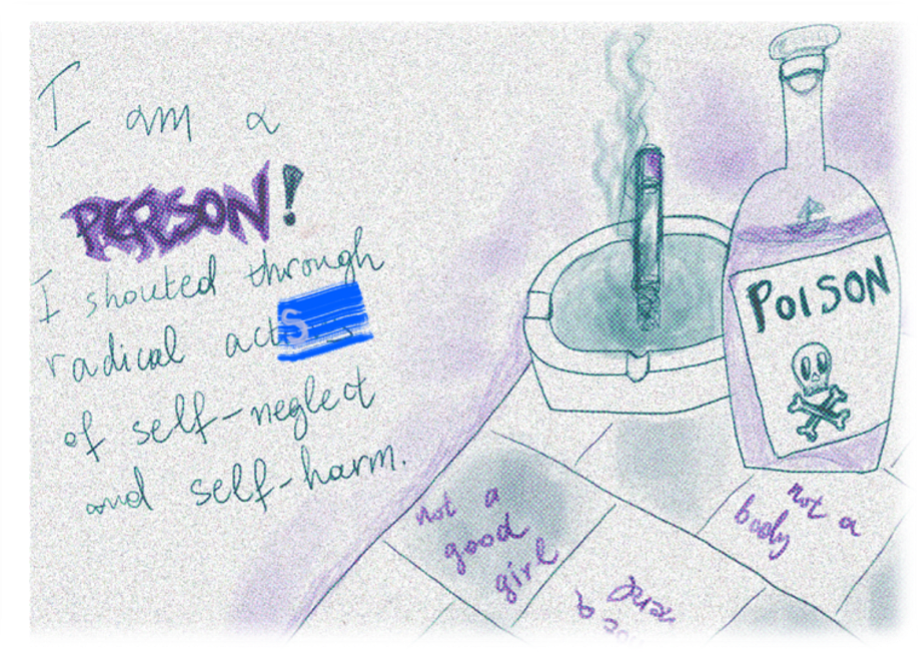 I am a
PERSON!
I shouted through
radical acts
of self-neglect
and self-harm.
POISON
not a
good
girl
not a
body